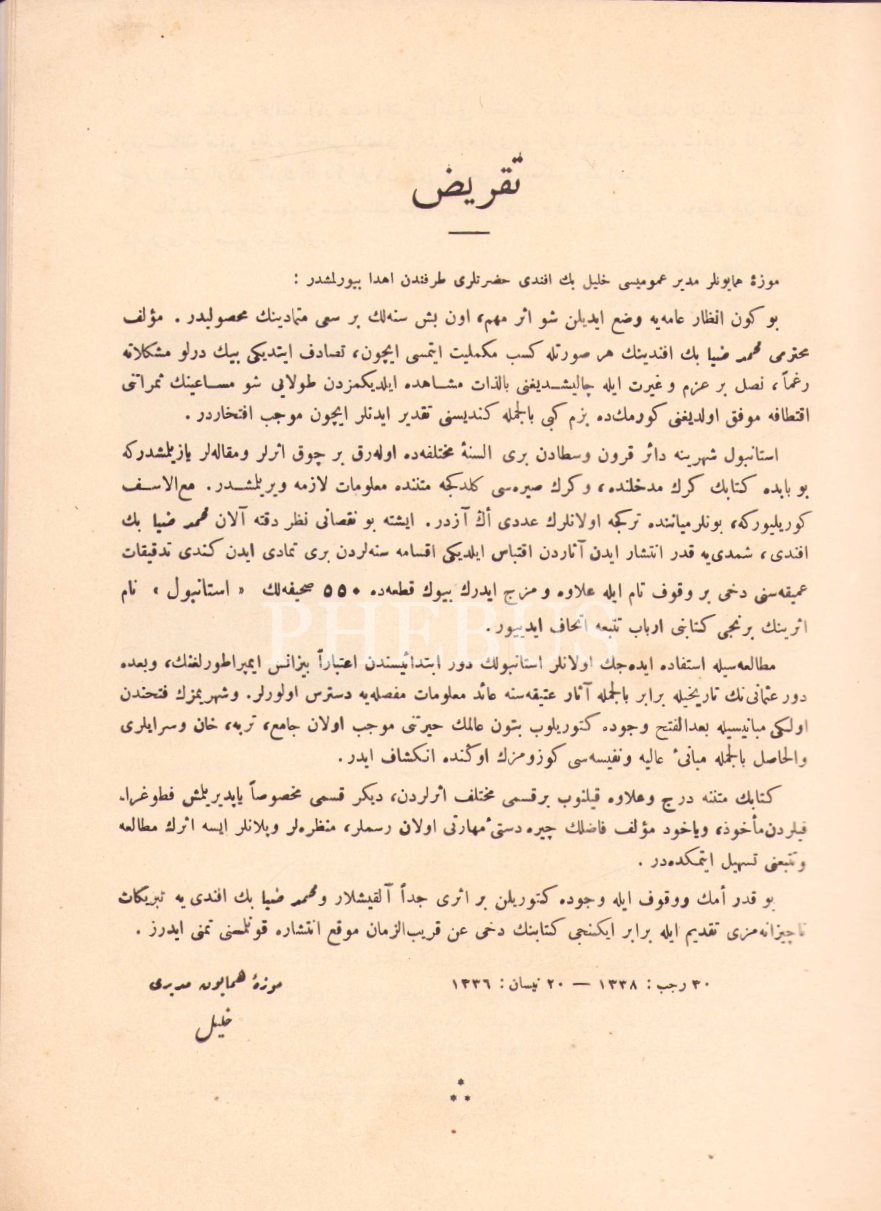 تقريض
موزۀ همايونلر مدير عموميسى خليل بك افندى حضرتلرى طرفندن اهدا بيورلمشدر :
بو كون انظار عامه‌يه وضع ايديلن شو اثر مهم، اون بش سنه‌لك بر سعى متمادينك محصوليدر . مؤلف
محترمى محمد ضيا بك افندينك هر صورتله كسب مكمليت ايتمسى ايچون، تصادف ايتديكى بيك درلو مشكلاته
رغماً، نصل بر عزم و غيرت ايله چاليشديغنى بالذات مشاهده ايلديكمزدن طولايى شو مساعينك ثمراتنى
اقتطافه موفق اولديغنى كورمك‌ده بزم كبى بالجمله كنديسنى تقدير ايدنلر ايچون موجب افتخاردر .
استانبول شهرينه دائر قرون وسطادن برى السنۀ مختلفه‌ده اوله‌رق بر چوق اثرلر ومقاله‌لر يازيلمشدركه
بو بابده كتابك كرك مدخلنده، وكرك صيره‌سى كلدكجه متننده معلومات لازمه ويريلمشدر. مع‌الاسف
كوريليوركه، بونلرميا‌ننده تركجه اولانلرك عددى اڭ آزدر. ايشته بو نقصانى نظر دقته آلان محمد ضيا بك
افندى، شمدى‌يه قدر انتشار ايدن آثاردن اقتباس ايلديكى اقسامه سنه‌لردن برى تمادى ايدن كندى تدقيقات
عميقه‌سنى دخى بر وقوف تام ايله علاوه و مزج ايدرك بيوك قطعه‌ده ٥٥٠ صحيفه‌لك « استانبول » نام
اثرينك برنجى كتابنى ارباب تتبعه اتحاف ايدييور.
مطالعه‌سيله استفاده ايده‌جك اولانلر استانبولك دور ابتدائيسندن اعتباراً بيزانس ايمپراطورلغنك، وبعده
دور عثمانى‌نك تاريخيله برابر بالجمله آثار عتيقه‌سنه عائد معلومات مفصله‌يه دسترس اولورلر. وشهريمزك فتحندن
اولكى مبانيسيله بعدالفتح وجوده كتوريلوب بتون عالمك حيرتنى موجب اولان جامع، تربه، خان وسرايلرى
والحاصل بالجمله مبانئ عاليه ونفيسه‌سى كوزومزك اوڭنده انكشاف ايدر.
كتابك متننه درج وعلاوه قيلنوب برقسمى مختلف اثرلردن، ديكر قسمى مخصوصاً ياپديريلمش فطوغرا-
فيلردن مأخوذ، وياخود مؤلف فاضلك چيره دستئ مهارتى اولان رسملر، منظره‌لر وپلانلر ايسه اثرك مطالعه
وتتبعنى تسهيل ايتمكده‌در .
بو قدر امك ووقوف ايله وجوده كتوريلن بر اثرى جداً آلقيشلار ومحمد ضيا بك افندى يه تبريكات
ناچيزانه‌مزى تقديم ايله برابر ايكنجى كتابنك دخى عن قريب‌الزمان موقع انتشاره قونلمسنى تمنى ايدرز .
٣٠ رجب : ١٣٣٨ — ٢٠ نيسان : ١٣٣٦
موزۀ همايون مديرى
خليل
PHEBUS